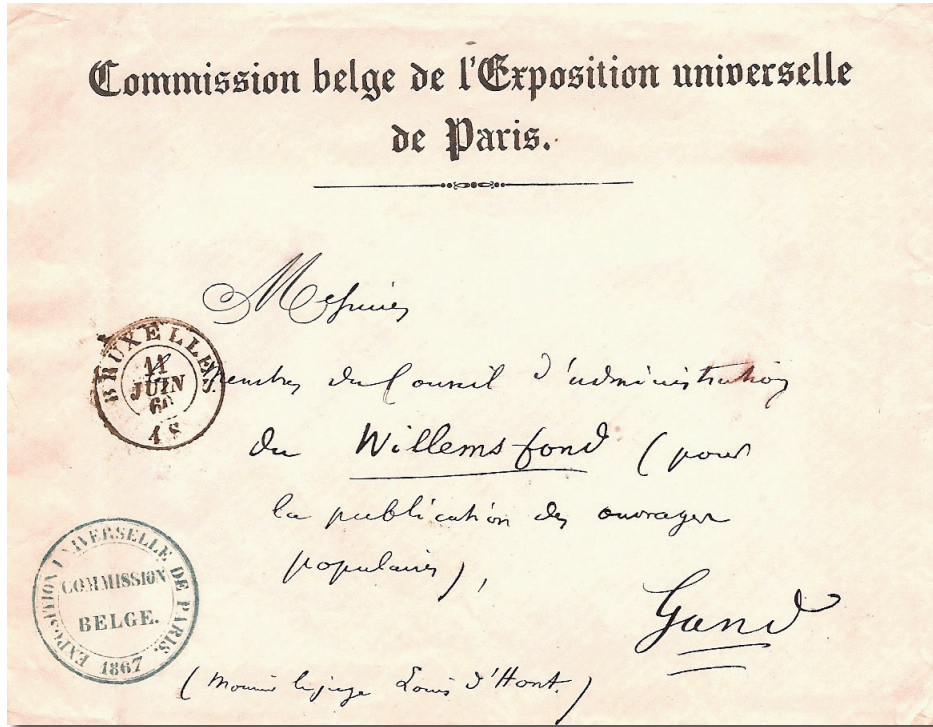 Commission belge de l'Exposition universelle
de Paris.
Messieurs
BRUXELLES
11
JUIN
6
membres du Conseil d'administration
du Willems-fond (pour
la publication des ouvrages
populaires),
Gand
EXPOSITION UNIVERSELLE DE PARIS.
COMMISSION
BELGE.
1867
Louis d'Hont.)